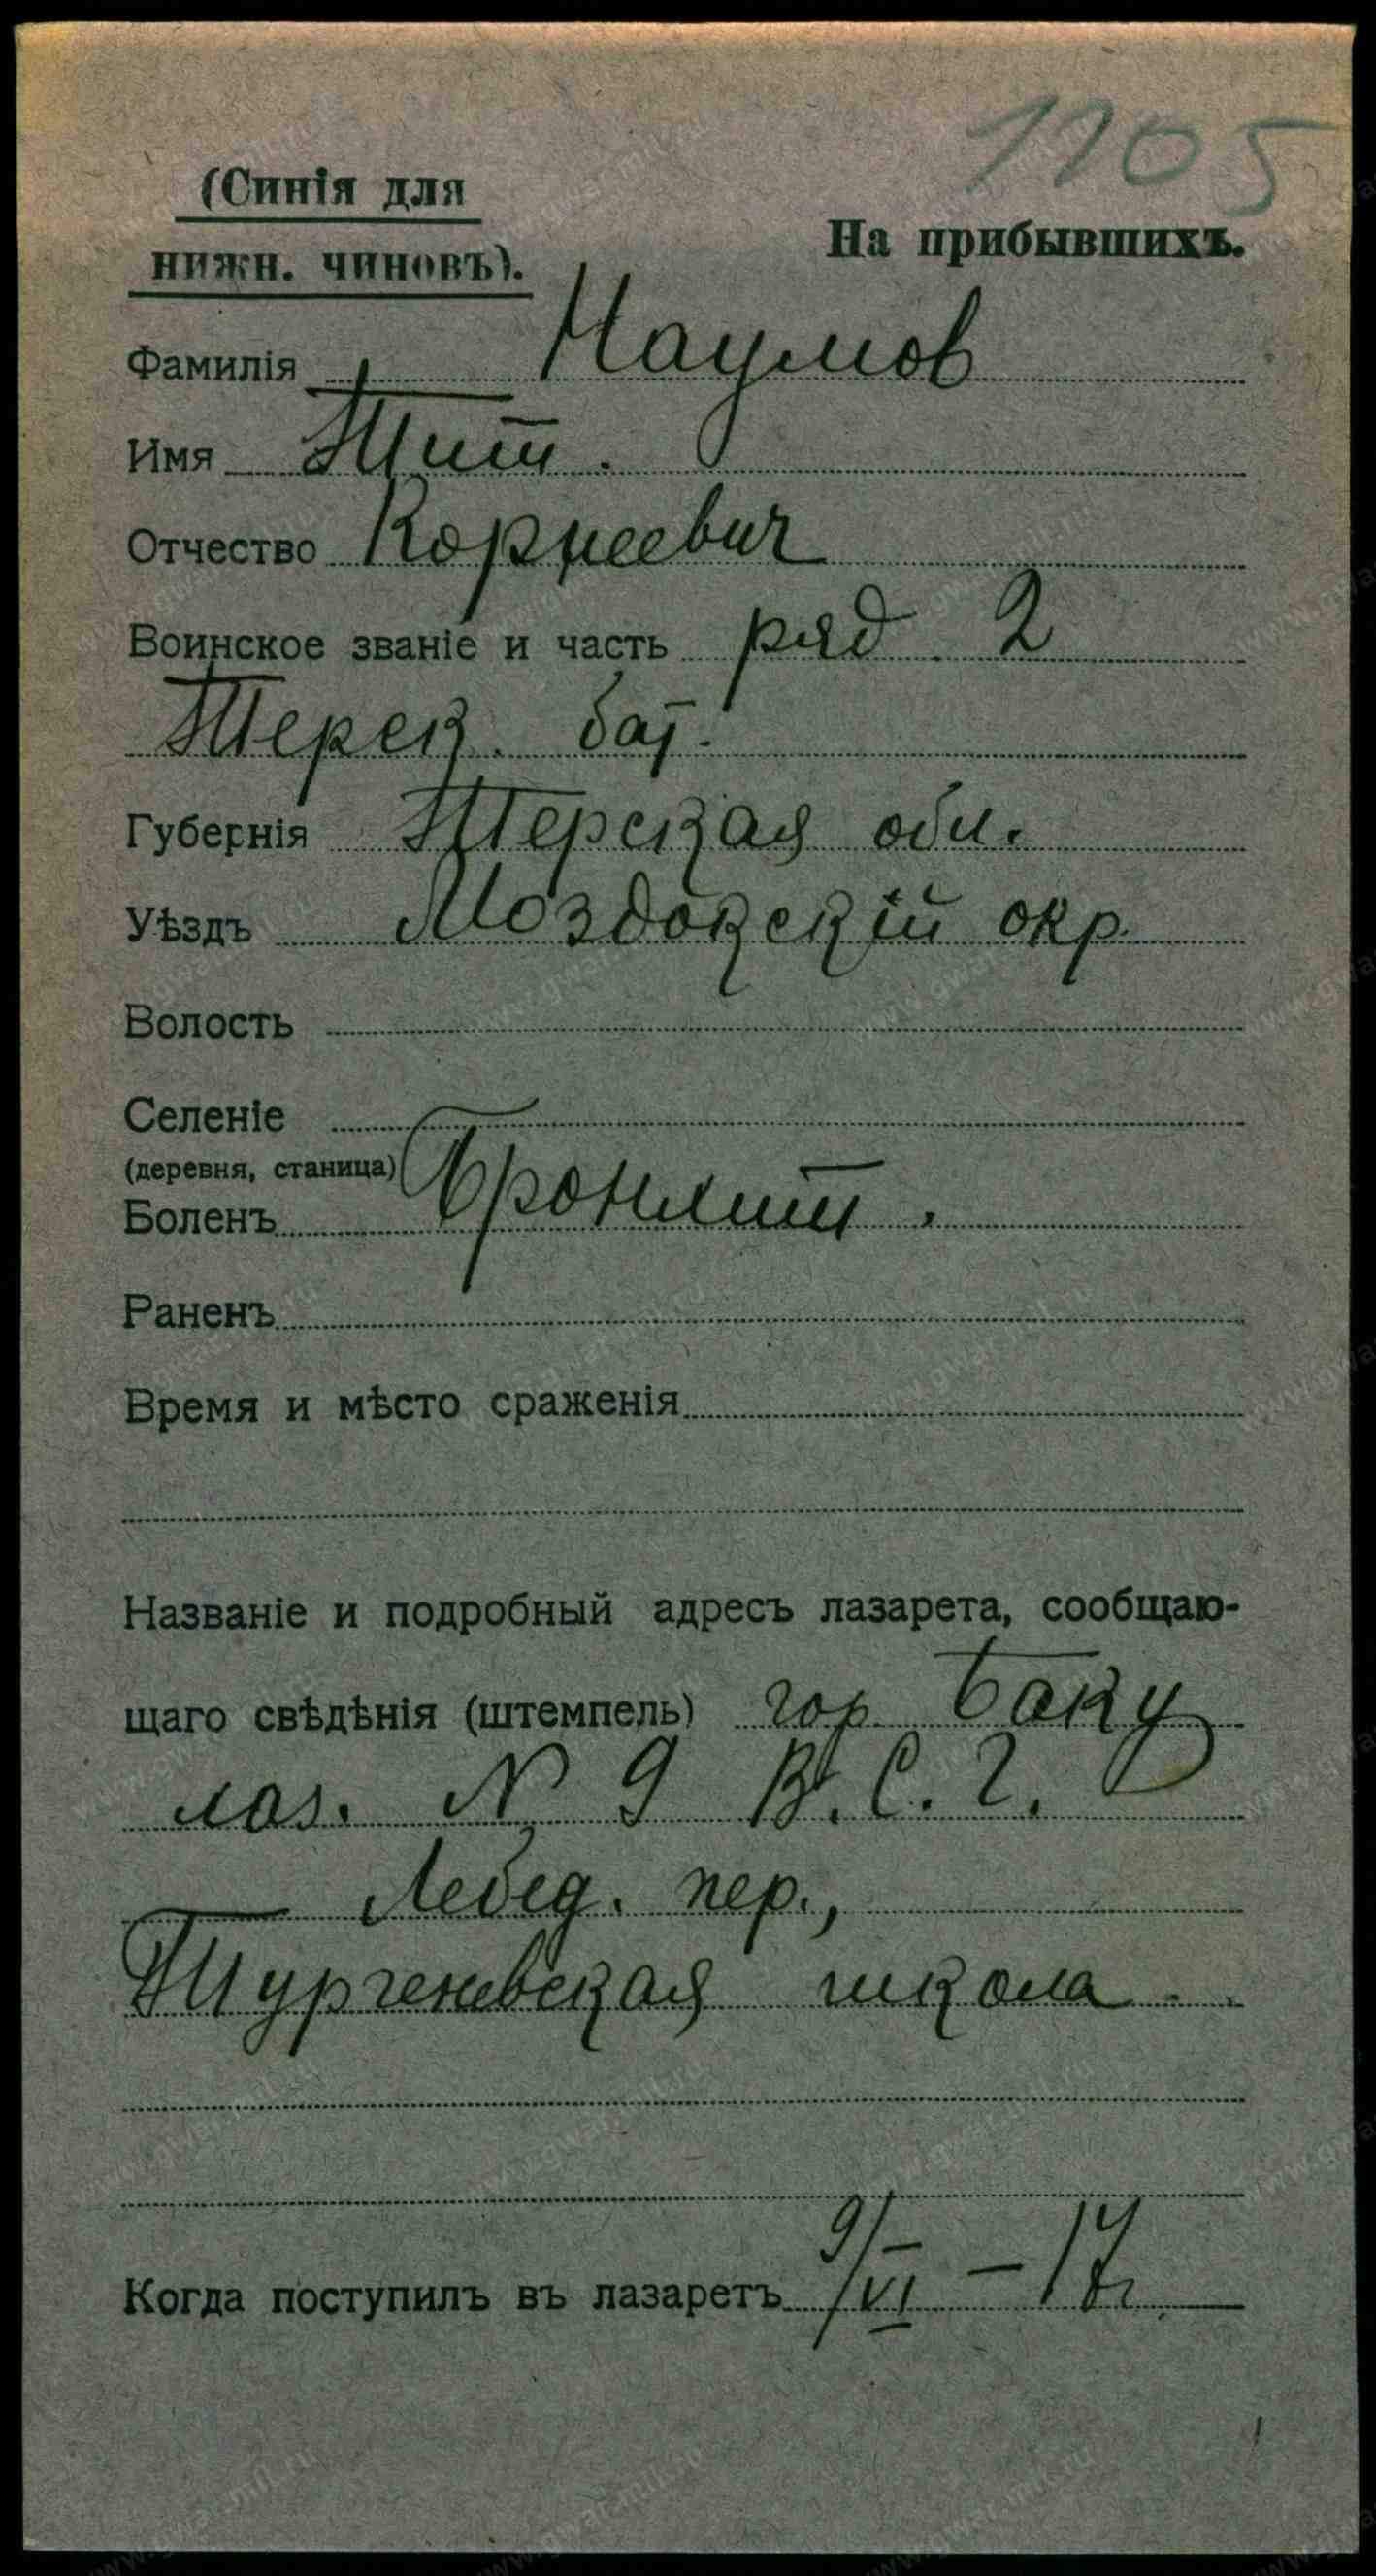 1105
(Синія для
нижн. чиновъ).
На прибывшихъ.
Фамилія Наумов
Имя Тит.
Отчество Корнеевич
Воинское званіе и часть ряд. 2
Терск. бат.
Губернія Терская обл.
Уѣздъ Моздокскій окр.
Волость
Селеніе
(деревня, станица)
Боленъ Бронхит.
Раненъ
Время и мѣсто сраженія
Названіе и подробный адресъ лазарета, сообщаю-
щаго свѣдѣнія (штемпель) гор. Баку
лаз. № 9 В. С. Г.
Лебед. пер.,
Тургеневская школа.
Когда поступилъ въ лазаретъ 9/VI – 17 г.